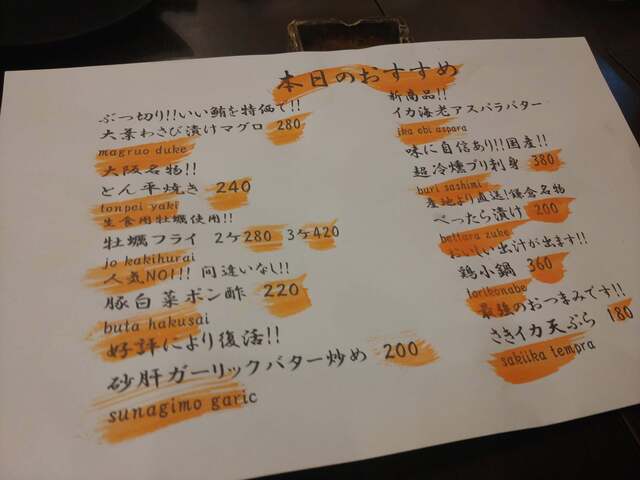 本日のおすすめ
ぶつ切り!!いい鮪を特価で!!
大葉わさび漬けマグロ 280
magruo duke
大阪名物!!
とん平焼き 240
tonpei yaki
生食用牡蠣使用!!
牡蠣フライ 2ケ280 3ケ420
jo kakihurai
人気NO1!! 間違いなし!!
豚白菜ポン酢 220
buta hakusai
好評により復活!!
砂肝ガーリックバター炒め 200
sunagimo garic
新商品!!
イカ海老アスパラバター
ika ebi aspara
味に自信あり!!国産!!
超冷燻ブリ刺身 380
buri sashimi
産地より直送!鎌倉名物
べったら漬け 200
bettara zuke
おいしい出汁が出ます!!
鶏小鍋 360
torikonabe
最強のおつまみです!!
さきイカ天ぷら 180
sakiika tempra